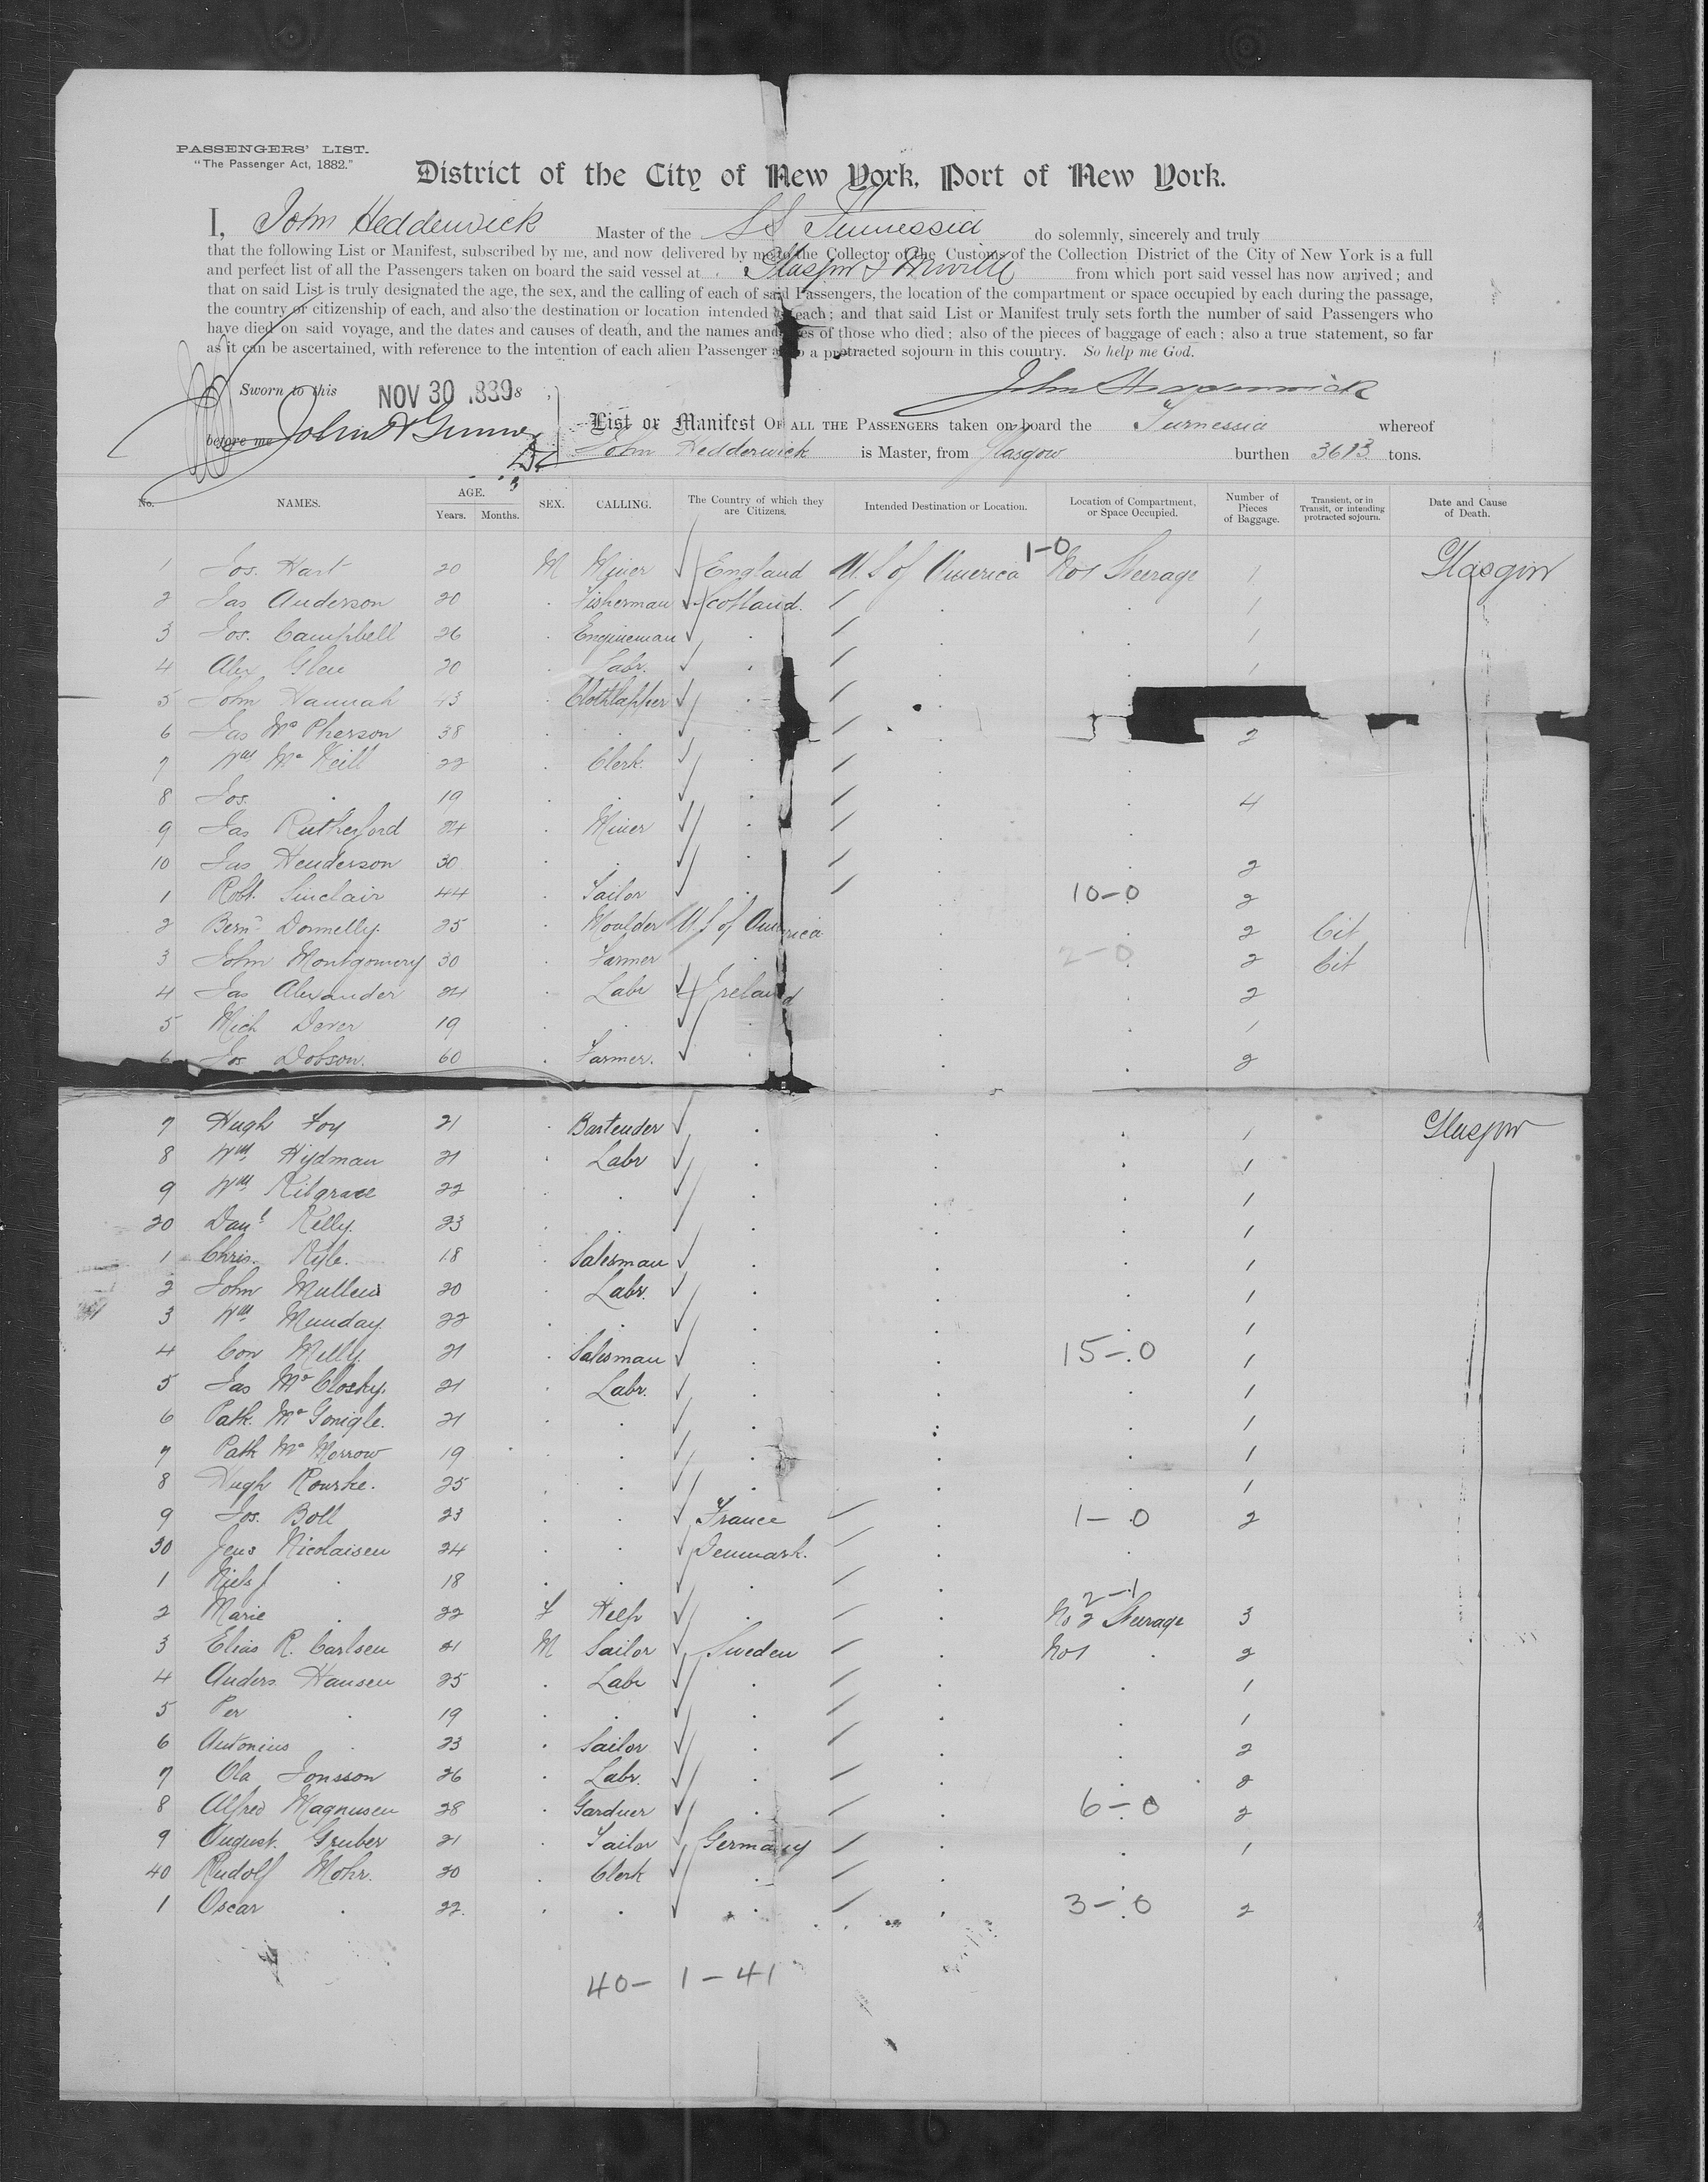 PASSENGERS' LIST.
"The Passenger Act, 1882."
District of the City of New York, Port of New York.
I, John Hedderwick Master of the SS Furnessia do solemnly, sincerely and truly
that the following List or Manifest, subscribed by me, and now delivered by me to the Collector of the Customs of the Collection District of the City of New York is a full
and perfect list of all the Passengers taken on board the said vessel at Glasgow & Moville from which port said vessel has now arrived; and
that on said List is truly designated the age, the sex, and the calling of each of said Passengers, the location of the compartment or space occupied by each during the passage,
the country or citizenship of each, and also the destination or location intended by each; and that said List or Manifest truly sets forth the number of said Passengers who
have died on said voyage, and the dates and causes of death, and the names and ages of those who died; also of the pieces of baggage of each; also a true statement, so far
as it can be ascertained, with reference to the intention of each alien Passenger as to a protracted sojourn in this country. So help me God.
Sworn to this NOV 30 1889 8 , John Hedderwick
before me John
List or Manifest OF ALL THE PASSENGERS taken on board the Furnessia whereof
John Hedderwick is Master, from Glasgow burthen 3613 tons.
No. NAMES. AGE. Years. Months. SEX. CALLING. The Country of which they are Citizens. Intended Destination or Location. Location of Compartment, or Space Occupied. Number of Pieces of Baggage. Transient, or in Transit, or intending protracted sojourn. Date and Cause of Death.
1-0
1 Jos. Hart 20 M Miner England U.S of America No 1 Steerage 1 Glasgow
2 Jas Anderson 20 . Fisherman Scotland . . 1
3 Jos. Campbell 26 . Engineman . . . 1
4 Alex Glen 20 . Labr. . . . 1
5 John Hannah 43 . Clothlapper .
6 Jas McPherson 38 . . . . 2
7 Wm McNeill 22 . Clerk . . .
8 Jos. . 19 . . . . . 4
9 Jas Rutherford 24 . Miner . . .
10 Jas Henderson 30 . . . . . 2
1 Robt. Sinclair 44 . Tailor . . 10-0 2
2 Bernd Donnelly 25 . Moulder U.S of America . . 2 Cit
3 John Montgomery 30 . Farmer . . 2-0 2 Cit
4 Jas Alexander 24 . Labr Ireland . . 2
5 Mich Dever 19 . . . . . 1
6 Jos Dobson. 60 . Farmer. . . . 2
7 Hugh Foy 21 . Bartender . . . 1 Glasgow
8 Wm Hydman 21 . Labr . . . 1
9 Wm Kilgrace 22 . . . . . 1
20 Danl Kelly. 23 . . . . . 1
1 Chris. Kyle. 18 . Salesman . . . 1
2 John Mullens 20 . Labr. . . . 1
3 Wm Munday 22 . . . . . 1
4 Con Melly. 21 . Salesman . . 15-0 1
5 Jas McClosky. 21 . Labr. . . . 1
6 Patk. McGonigle. 21 . . . . . 1
7 Patk McMorrow 19 . . . . . 1
8 Hugh Rourke. 25 . . . . . 1
9 Jos. Boll 23 . . France . 1-0 2
30 Jens Nicolaisen 24 . . Denmark. . .
1 Niels J . 18 . . . .
2-1
2 Marie . 22 F Help . . No 2 Steerage 3
3 Elias R. Carlsen 21 M Sailor Sweden . No 1 . 2
4 Anders Hansen 25 . Labr . . . 1
5 Per . 19 . . . . . 1
6 Antonius . 23 . Sailor . . . 2
7 Ola Jonsson 26 . Labr. . . . 2
8 Alfred Magnusen 28 . Gardner . . 6-0 2
9 August. Gruber 21 . Tailor Germany . . 1
40 Rudolf Mohr. 20 . Clerk . . .
1 Oscar . 22. . . . . 3-0 2
40- 1-41